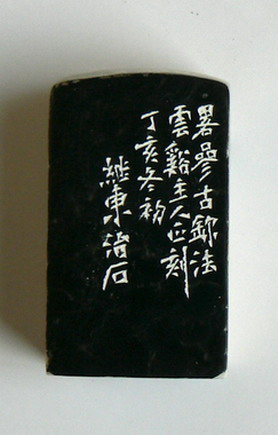 畧參古鉨法
雲谿主人正刻
丁亥冬初
継東治石